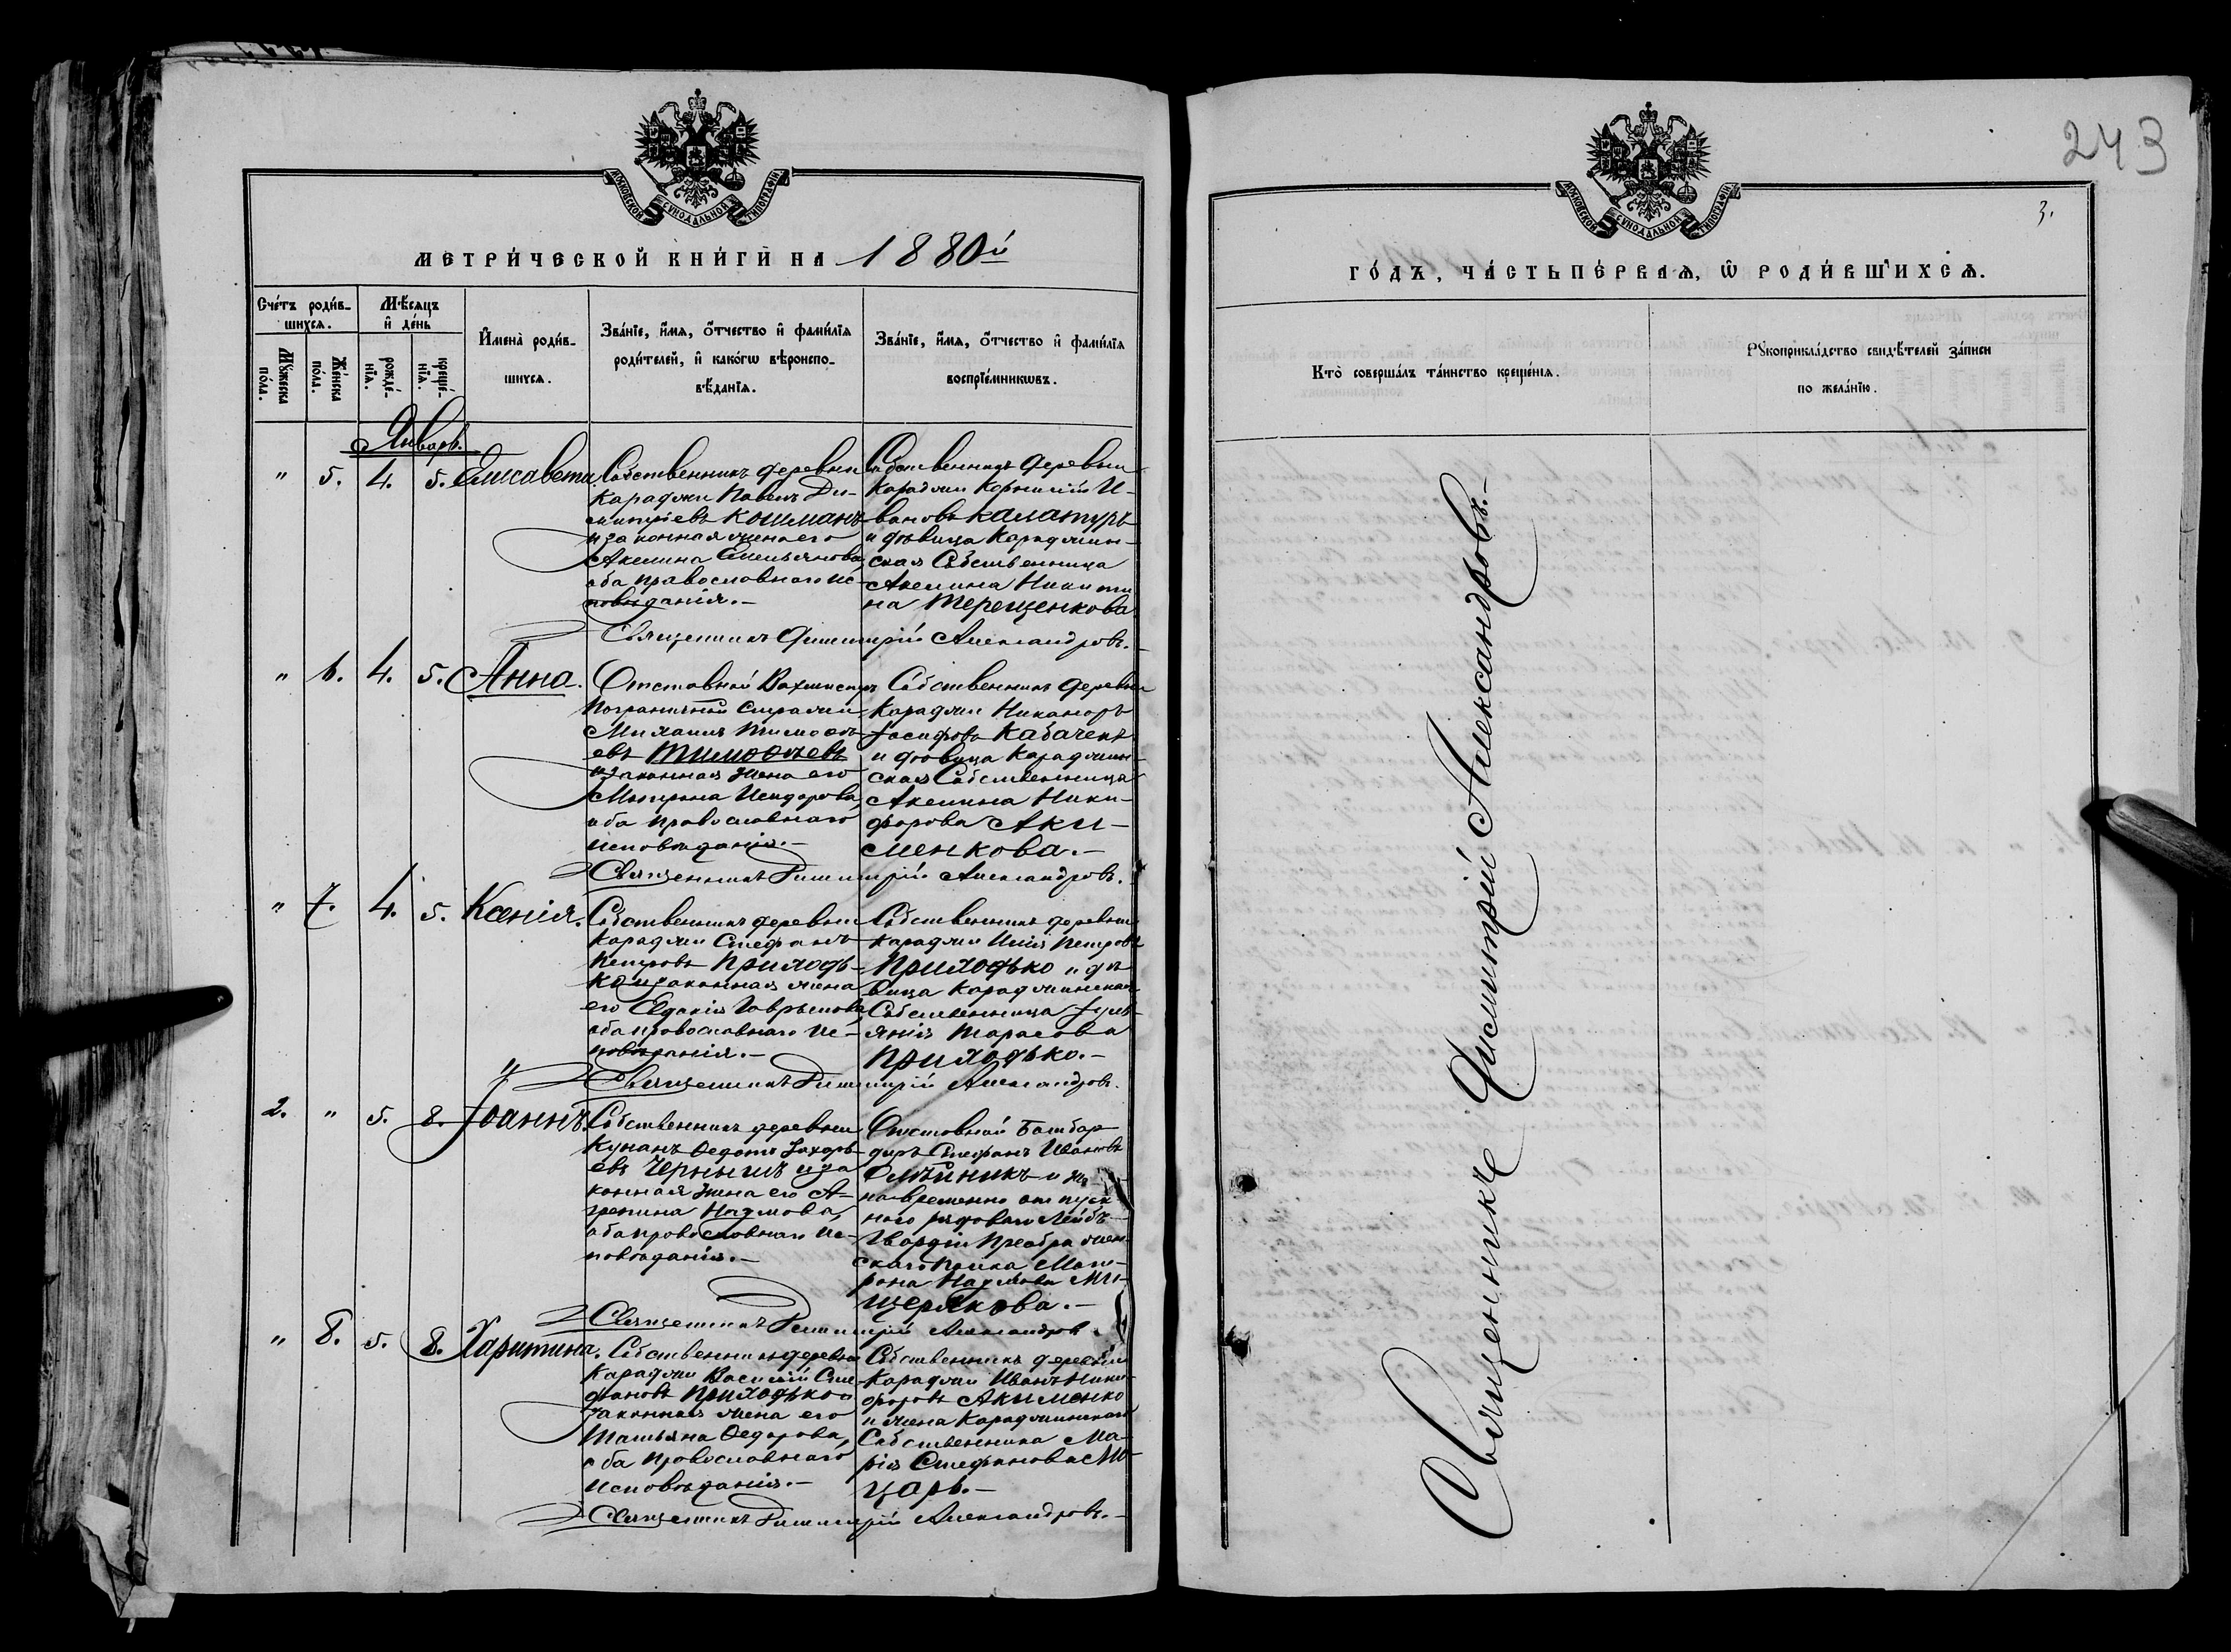 МОСКОВСКОЙ СѴНОДАЛЬНОЙ ТИПОГРАФІИ
МЕТРИ́ЧЕСКОЙ КНИ́ГИ НА 1880й
Сче́тъ роди́в-
шихся.
Мѣ́сяцъ
и҆ де́нь
Мꙋ́жеска
по́ла.
Же́нска
по́ла.
рожде́-
нїѧ.
креще́-
нїѧ.
И҆мена̀ роди́в-
шихсѧ.
Зва́нїе, и҆́мѧ, ѻ҆́тчество и҆ фами́лїѧ
роди́телей, и҆ како́гѡ вѣроиспо-
вѣ́данїѧ.
Зва́нїе, и҆́мѧ, ѻ҆́тчество и҆ фами́лїѧ
воспрїе́мникѡвъ.
Январь.
" 5. 4. 5. Елисавета
Собственникъ деревни
Караджи Павелъ Ди-
митріевъ Кошманъ
и законная жена его
Акилина Емельянова
оба православнаго ис-
повѣданія.-
Собственникъ деревни
Караджи Корнилій И-
вановъ Калатуръ
и дѣвица Караджин-
ская Собственница
Акилина Никити
на Терещенкова
Священникъ Димитрій Александровъ.
" 6. 4. 5. Анна.
Отставной Вахмистръ
Пограничной Стражи
Михаилъ Тимоѳе-
евъ Тимоѳеевъ
и законная жена его
Матрона Исидорова,
оба православнаго
исповѣданія.-
Собственникъ деревни
Караджи Никаноръ
Іосифовъ Кабаченк
и дѣвица Караджин-
ская Собственница
Акилина Ники-
форова Аки-
менкова.-
Священникъ Димитрій Александровъ.
" 7. 4. 5. Ксенія.
Собственникъ деревни
Караджи Стефанъ
Петровъ Приходь-
ко и законная жена
его Евдокія Гаврилова
оба православнаго ис-
повѣданія.-
Собственникъ деревни
Караджи Илія Петровъ
Приходько и дѣ
вица Караджинская
Собственница Іулі-
янія Тарасова
Приходько.-
Священникъ Димитрій Александровъ.
2. " 5. 8. Іоаннъ
Собственникъ деревни
Кунанъ Ѳедотъ Захарь-
евъ Чернышъ и за
конная жена его А-
грепина Наумова,
оба православнаго ис-
повѣданія.-
Отставной Бомбар-
диръ Стефанъ Ивановъ
Олѣйникъ и же-
на временно отпуск-
ного рядоваго Лейбъ-
Гвардіи Преображен-
скаго Полка Мат-
рона Наумова Ми-
щерякова.-
Священникъ Димитрій Александровъ
" 8. 5. 8. Харитина.
Собственникъ деревни
Караджи Василій Сте
фановъ Приходько и
законная жена его
Татьяна Ѳедорова,
оба православнаго
исповѣданія.-
Собственникъ деревни
Караджи Иванъ Ники-
форовъ Акименко
и жена Караджинскаго
Собственника Ма-
рія Стефанова Мо-
царь.-
Священникъ Димитрій Александровъ.-
243
3.
МОСКОВСКОЙ СѴНОДАЛЬНОЙ ТИПОГРАФІИ
ГО́ДЪ, ЧА́СТЬ ПЕ́РВАѦ, Ѡ҆ РОДИ́ВШИХСѦ.
Кто̀ соверша́лъ та́инство креще́нїѧ.
Рꙋкоприкла́дство свидѣ́телей за́писи
по жела́нїю.
Священникъ Димитрій Александровъ.-